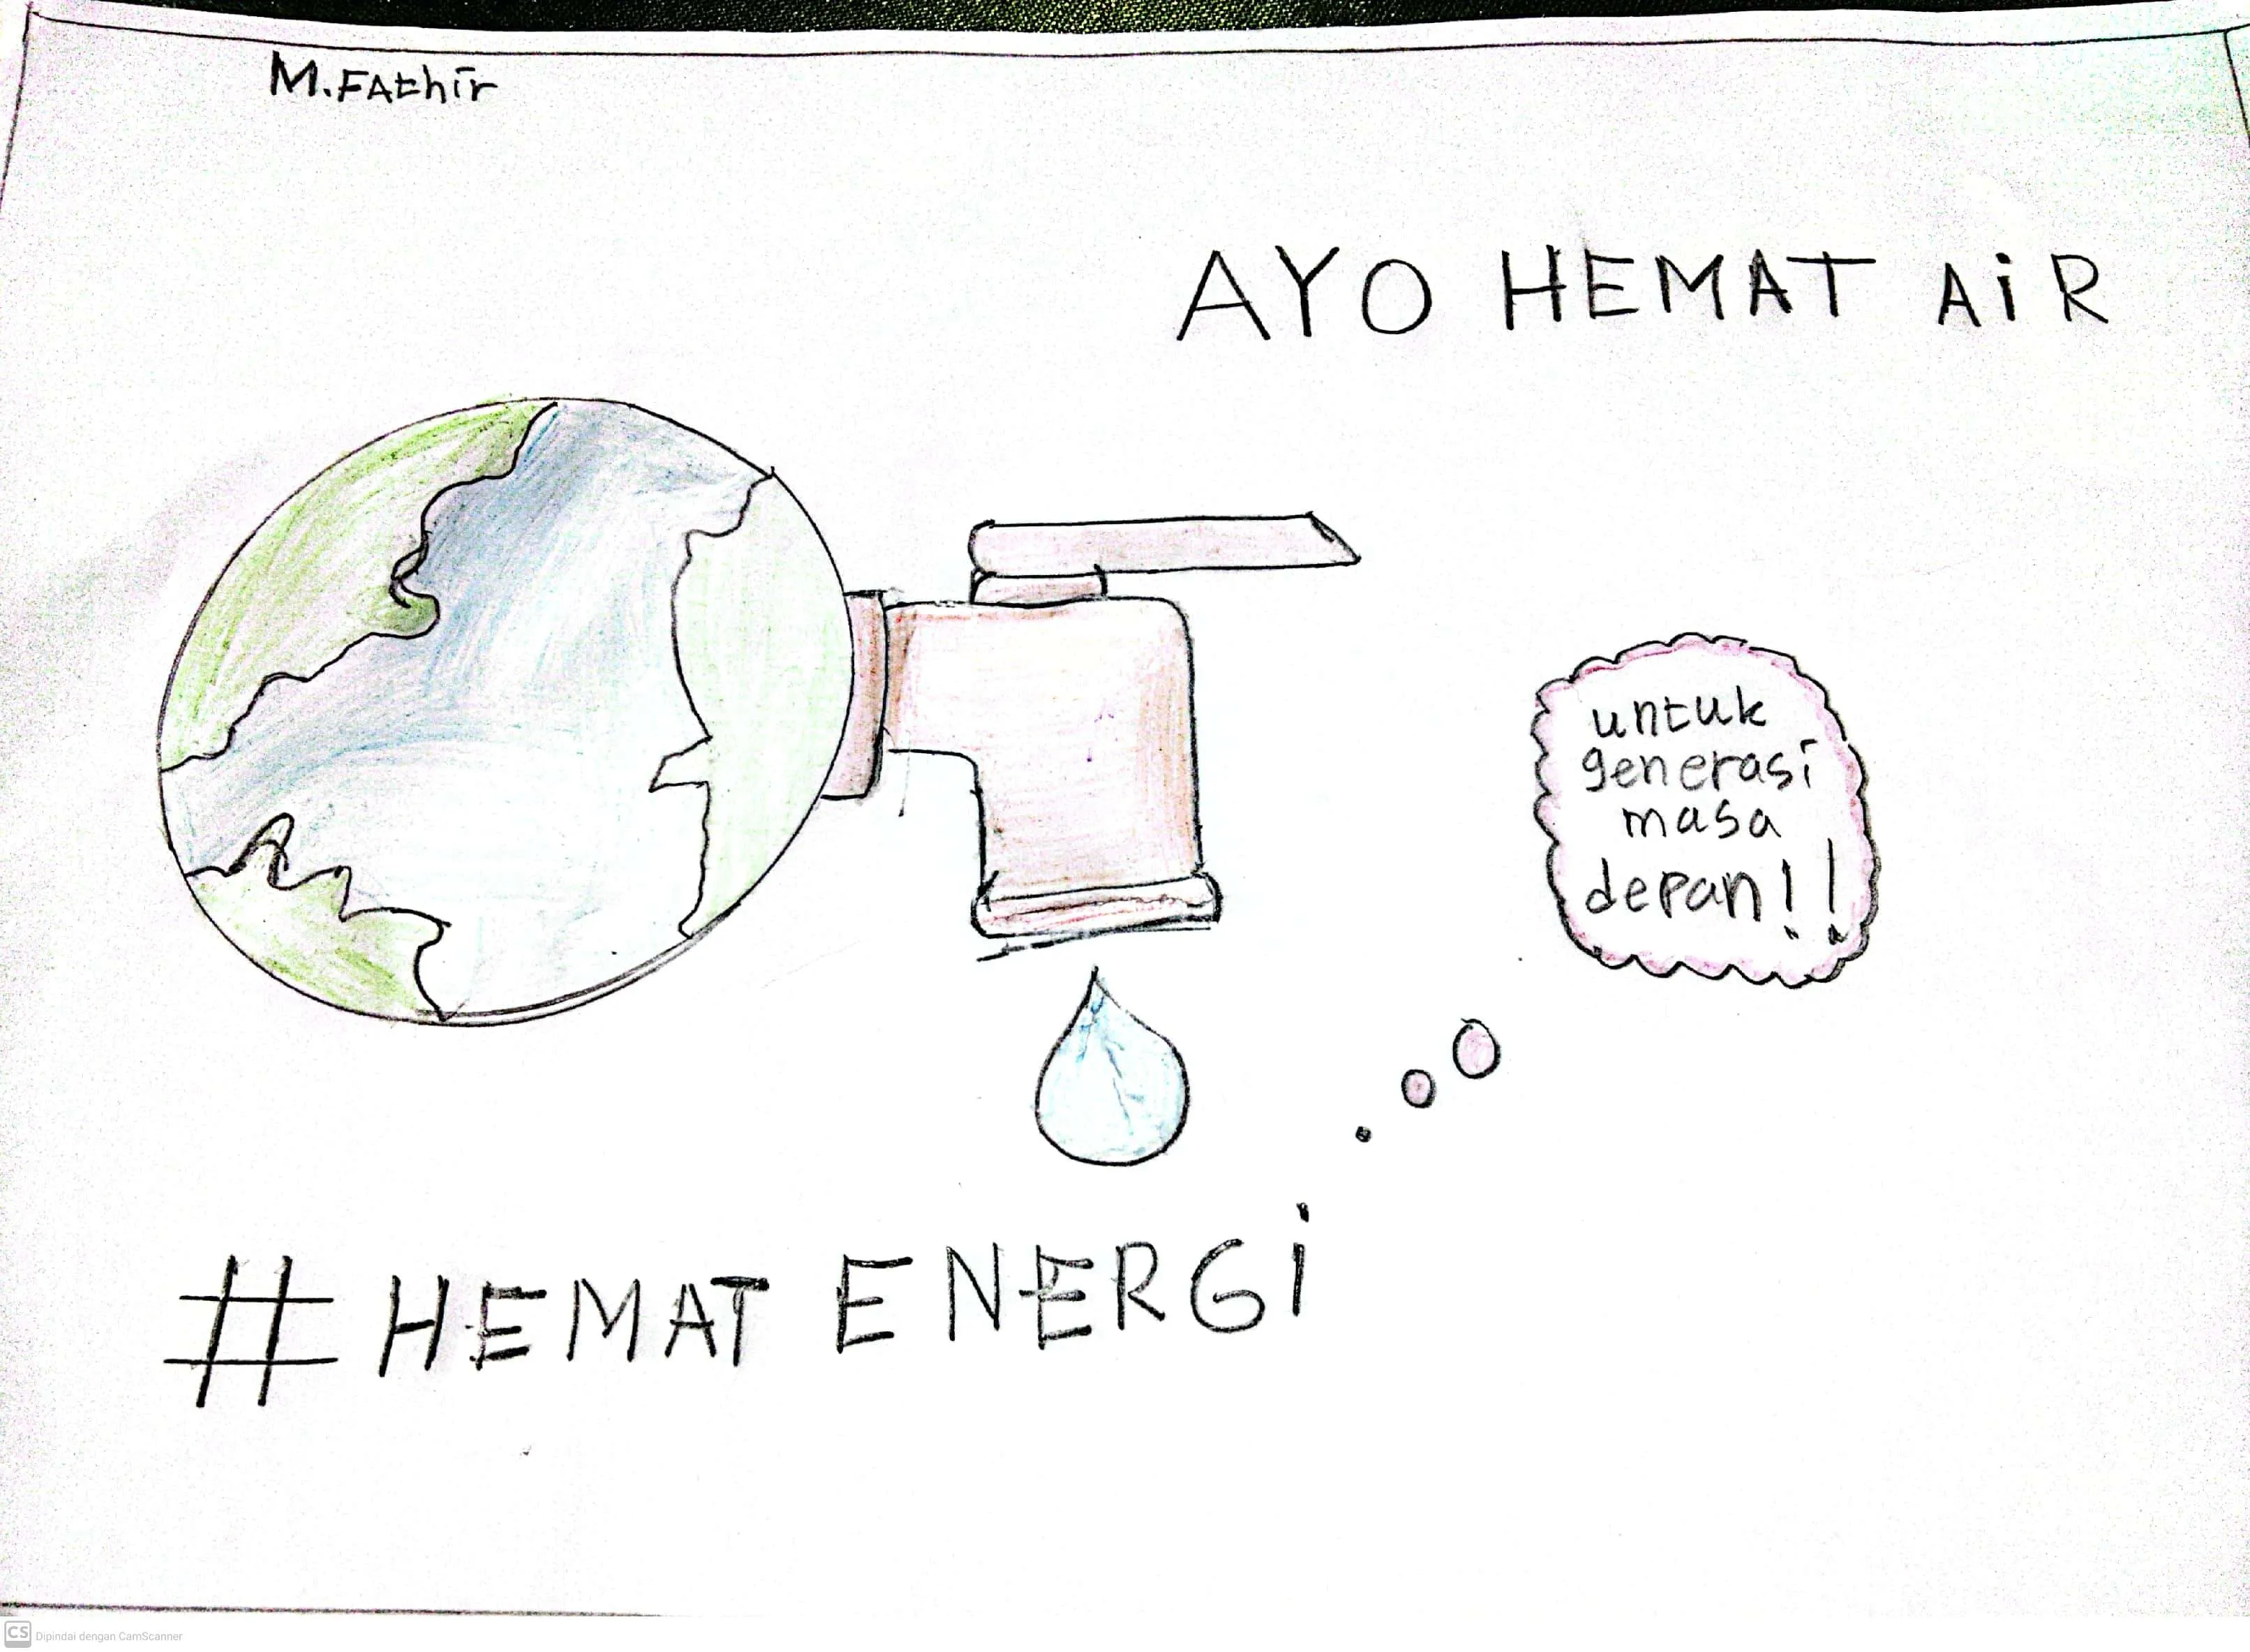 M.FAthir
AYO HEMAT AiR
untuk
generasi
masa
depan!!
# HEMAT ENERGi
CS Dipindai dengan CamScanner